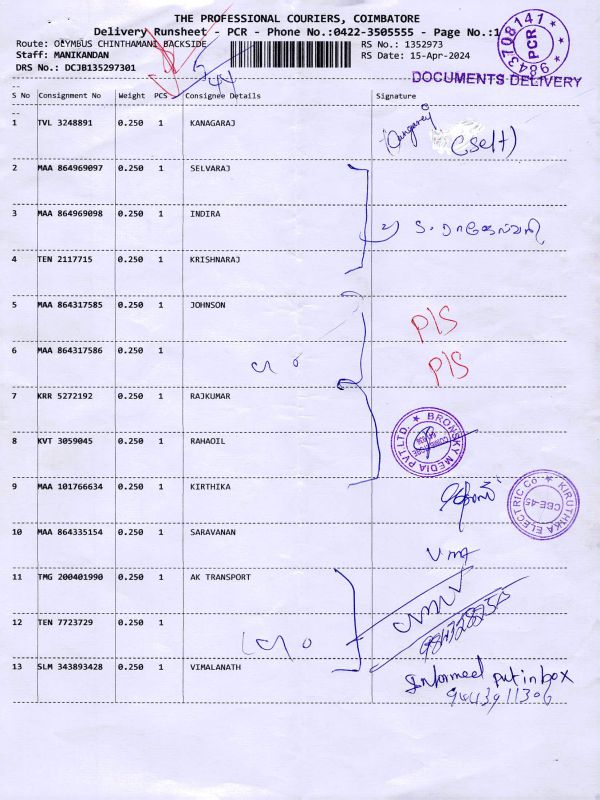 THE PROFESSIONAL COURIERS, COIMBATORE
Delivery Runsheet - PCR - Phone No.:0422-3505555 - Page No.:1
Route: OLYMBUS CHINTHAMANI BACKSIDE
RS No.: 1352973
Staff: MANIKANDAN
RS Date: 15-Apr-2024
DRS No.: DCJB135297301
9843708141
PCR
DOCUMENTS DELIVERY
44
S No Consignment No Weight PCS Consignee Details Signature
1 TVL 3248891 0.250 1 KANAGARAJ
(Self)
2 MAA 864969097 0.250 1 SELVARAJ
3 MAA 864969098 0.250 1 INDIRA
4 TEN 2117715 0.250 1 KRISHNARAJ
5 MAA 864317585 0.250 1 JOHNSON P/S
6 MAA 864317586 0.250 1 P/S
7 KRR 5272192 0.250 1 RAJKUMAR
BRONSKY MEDIA PVT.LTD.
8 KVT 3059045 0.250 1 RAHAOIL
9 MAA 101766634 0.250 1 KIRTHIKA
KIRUTHKA ELECTRIC Co
CBE-45
10 MAA 864335154 0.250 1 SARAVANAN
11 TMG 200401990 0.250 1 AK TRANSPORT
12 TEN 7723729 0.250 1
13 SLM 343893428 0.250 1 VIMALANATH
Informed put in box